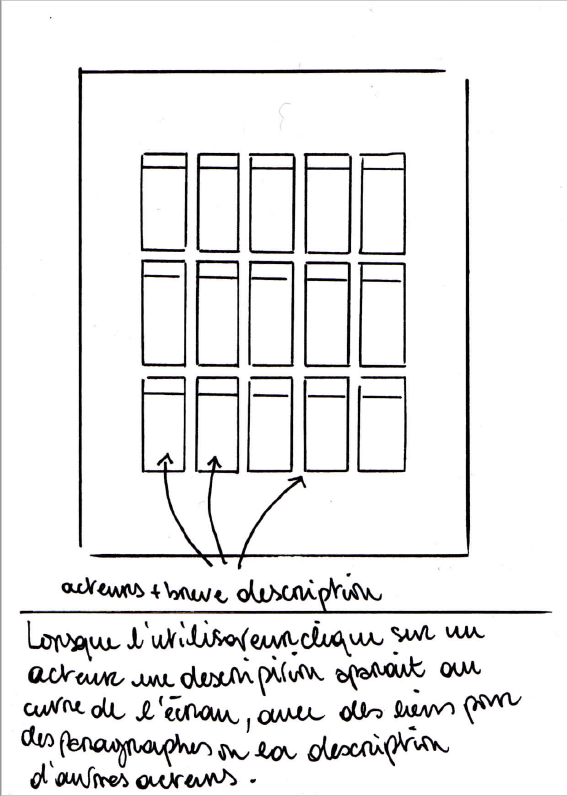 acteurs + breve description
Lorsque l'utilisateur clique sur un
acteur une description aparait au
cntre de l'écran, avec des liens pour
des paragraphes ou la description
d'autres acteurs.